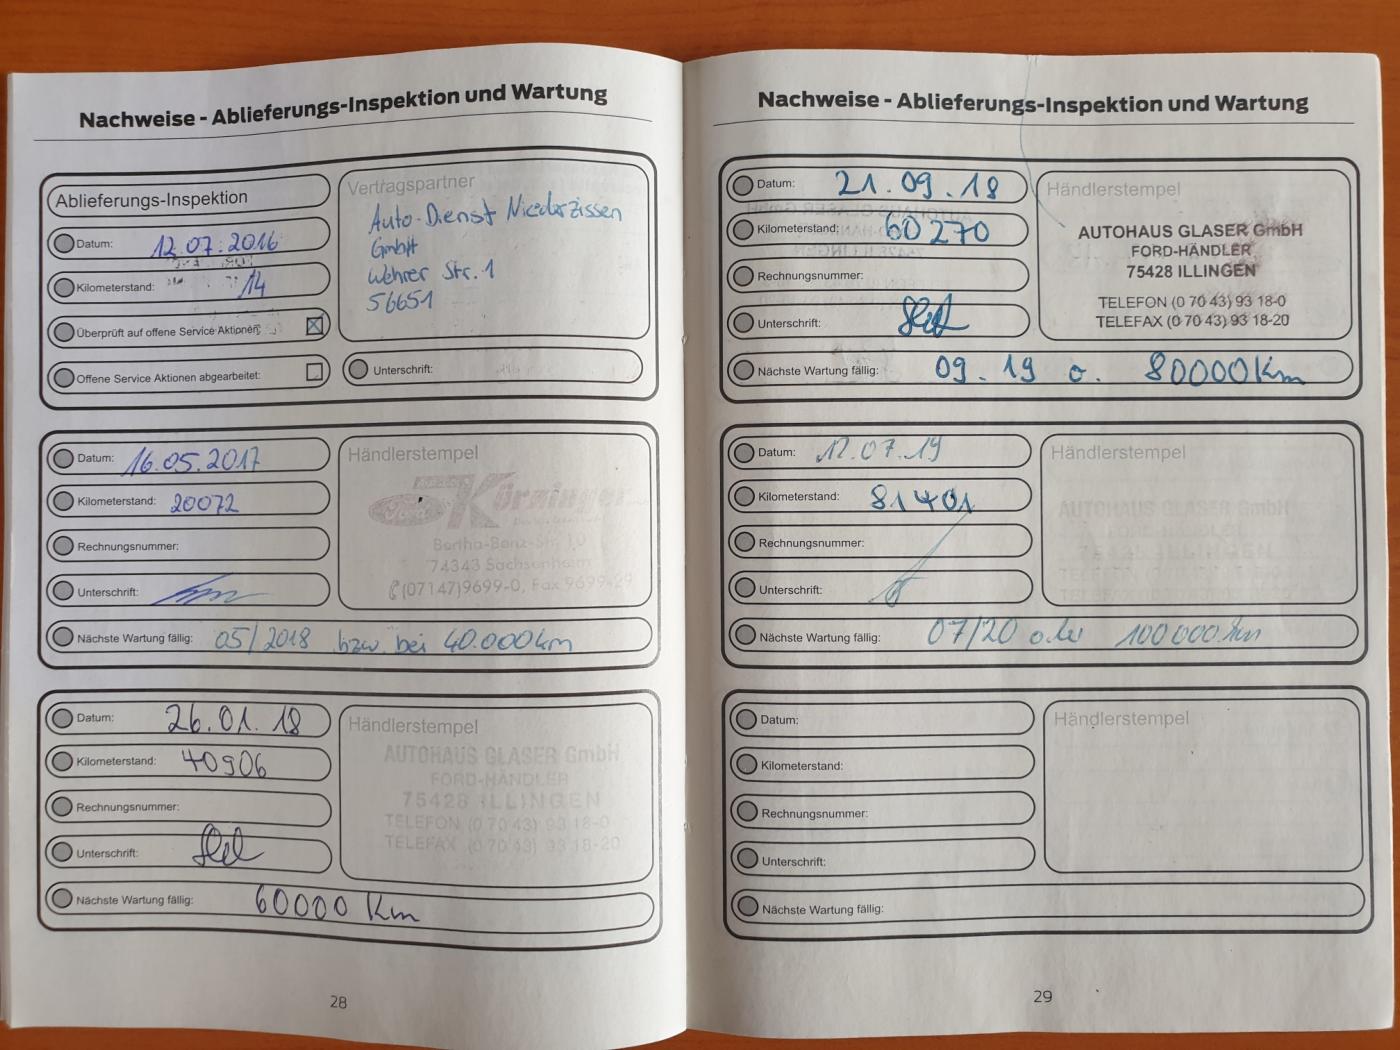 Nachweise - Ablieferungs-Inspektion und Wartung
Ablieferungs-Inspektion
Datum: 12.07.2016
Kilometerstand: 14
Überprüft auf offene Service Aktionen:
Offene Service Aktionen abgearbeitet:
Vertragspartner
Auto-Dienst Niederzissen
GmbH
Wehrer Str. 1
56651
Unterschrift:
Datum: 16.05.2017
Kilometerstand: 20072
Rechnungsnummer:
Unterschrift:
Nächste Wartung fällig: 05/2018 bzw. bei 40.000km
Händlerstempel
Körzinger
Bertha-Benz-Str. 10
74343 Sachsenheim
(07147)9699-0, Fax 9699-29
Datum: 26.01.18
Kilometerstand: 40906
Rechnungsnummer:
Unterschrift:
Nächste Wartung fällig: 60000 Km
Händlerstempel
AUTOHAUS GLASER GmbH
FORD-HÄNDLER
75428 ILLINGEN
TELEFON (0 70 43) 93 18-0
TELEFAX (0 70 43) 93 18-20
28
Nachweise - Ablieferungs-Inspektion und Wartung
Datum: 21.09.18
Kilometerstand: 60270
Rechnungsnummer:
Unterschrift:
Nächste Wartung fällig: 09.19 o. 80000Km
Händlerstempel
AUTOHAUS GLASER GmbH
FORD-HÄNDLER
75428 ILLINGEN
TELEFON (0 70 43) 93 18-0
TELEFAX (0 70 43) 93 18-20
Datum: 12.07.19
Kilometerstand: 81401
Rechnungsnummer:
Unterschrift:
Nächste Wartung fällig: 07/20 oder 100000km
Händlerstempel
AUTOHAUS GLASER GmbH
FORD-HÄNDLER
75428 ILLINGEN
Datum:
Kilometerstand:
Rechnungsnummer:
Unterschrift:
Nächste Wartung fällig:
Händlerstempel
29